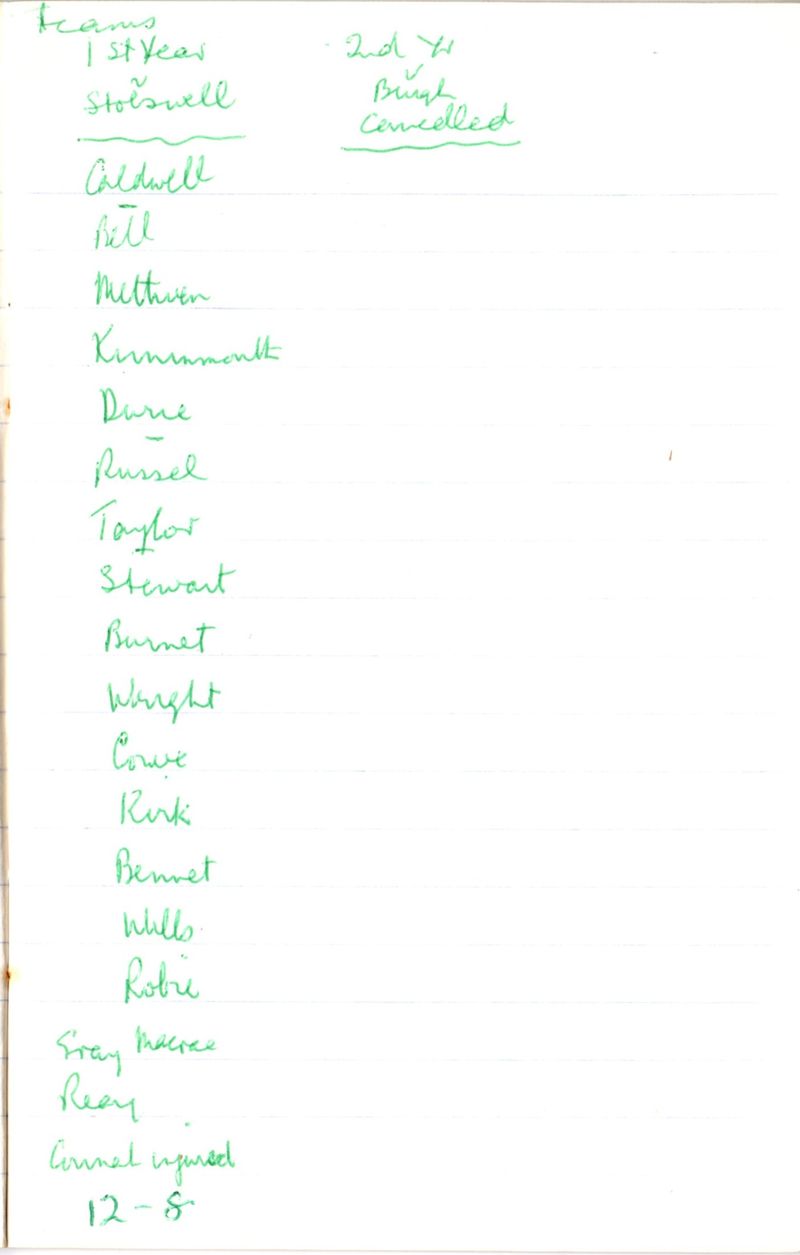 Teams
1st Year
2nd Yr
v
Stobswell
v
Burgh
Cancelled
Caldwell
Bell
Methven
Kinninmonth
Durie
Russel
Taylor
Stewart
Burnet
Wright
Cowie
Kirk
Bennet
Wills
Robie
Gray Macrae
Reay
injured
12 - 8